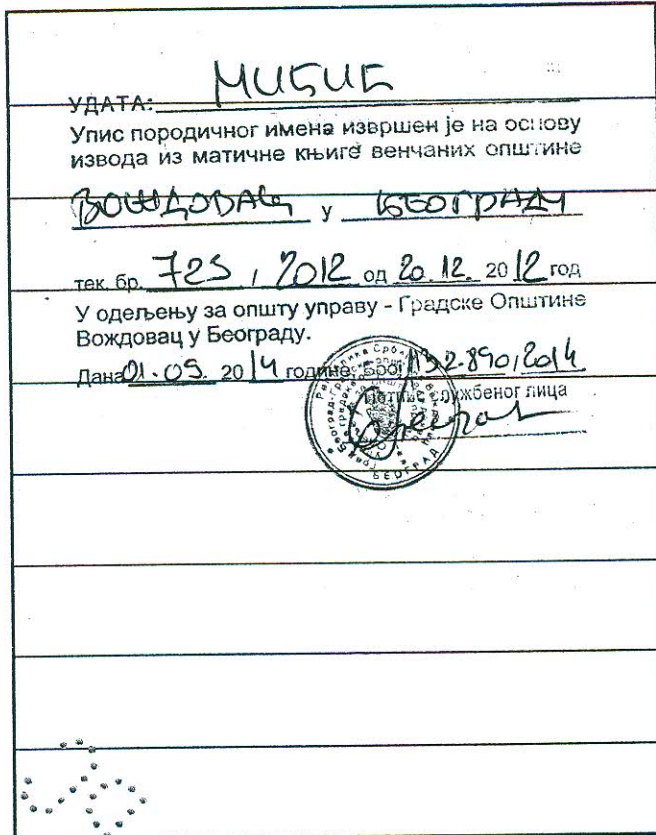 УДАТА: МИЋИЋ
Упис породичног имена извршен је на основу
извода из матичне књиге венчаних општине
ВОЖДОВАЦ у БЕОГРАДУ
тек. бр. 725 / 2012 од 20. 12. 2012 год
У одељењу за општу управу - Градске Општине
Вождовац у Београду.
Дана 01.09. 2014 године, Број 132-890/2014
Потпис службеног лица
Република Србија
БЕОГРАД